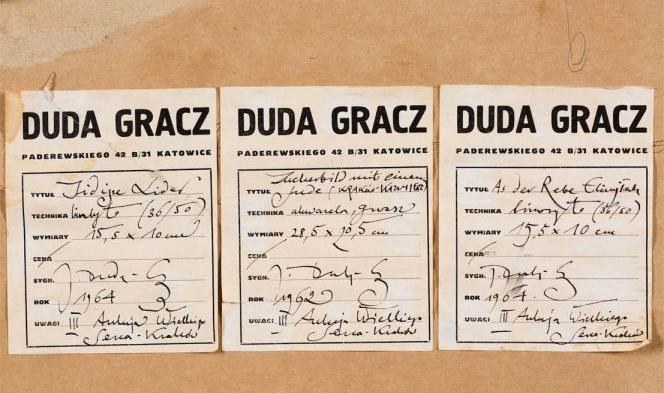 DUDA GRACZ
PADEREWSKIEGO 42 B/31 KATOWICE
TYTUŁ "Jidysze Lider"
TECHNIKA linoryt (36/50)
WYMIARY 15,5 x 10 cm
CENA
SYGN. J. Duda-G
ROK 1964
UWAGI III Aukcja Wielkiego
Serca - Kraków
DUDA GRACZ
PADEREWSKIEGO 42 B/31 KATOWICE
mit einem
TYTUŁ Jude (Kraków-Kazimierz)
TECHNIKA akwarela, gwasz
WYMIARY 28,5 x 20,5 cm
CENA
SYGN. J. Duda-G
ROK 1962
UWAGI III Aukcja Wielkiego
Serca - Kraków
DUDA GRACZ
PADEREWSKIEGO 42 B/31 KATOWICE
TYTUŁ As der Rebe Elimelech
TECHNIKA linoryt (36/50)
WYMIARY 15,5 x 10 cm
CENA
SYGN. J. Duda-G
ROK 1964.
UWAGI III Aukcja Wielkiego
Serca - Kraków